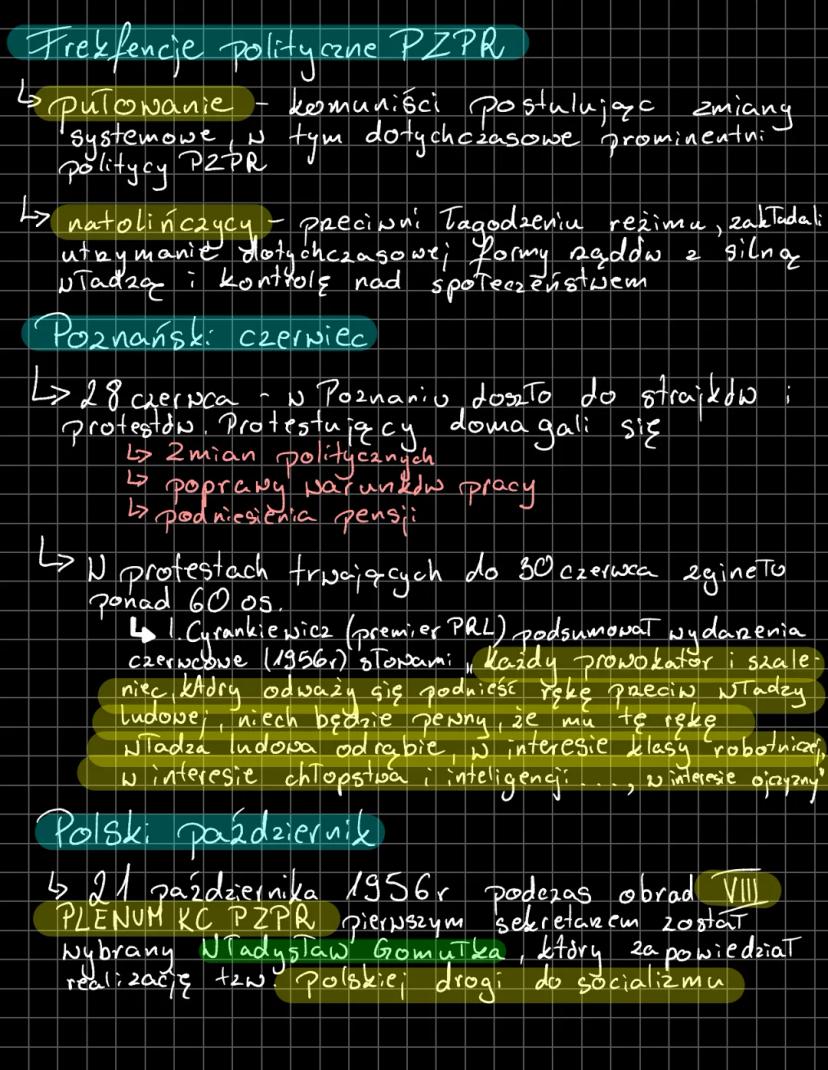 Frekfencje polityczne PZPR
↳ puławanie - komuniści postulując zmiany
systemowe, w tym dotychczasowe prominentni
politycy PZPR
↳ natolińczycy - przeciwni łagodzeniu reżimu, zakładali
utrzymanie dotychczasowej formy rządów z silną
władzą i kontrolę nad społeczeństwem
Poznański czerwiec
↳ 28 czerwca - w Poznaniu doszło do strajków i
protestów. Protestujący domagali się
↳ Zmian politycznych
↳ poprawy warunków pracy
↳ podniesienia pensji
↳ W protestach trwających do 30 czerwca zgineło
ponad 60 os.
↳ 1. Cyrankiewicz (premier PRL) podsumował wydarzenia
czerwcowe (1956r) słowami „każdy prowokator i szale-
niec, który odważy się podnieść rękę przeciw władzy
ludowej, niech będzie pewny, że mu tę rękę
władza ludowa odrąbie, w interesie klasy robotniczej,
w interesie chłopstwa i inteligencji ..., w interesie ojczyzny"
Polski październik
↳ 21 października 1956r podczas obrad VIII
PLENUM KC PZPR pierwszym sekretarzem został
wybrany Władysław Gomułka, który zapowiedział
realizację tzw. Polskiej drogi do socializmu